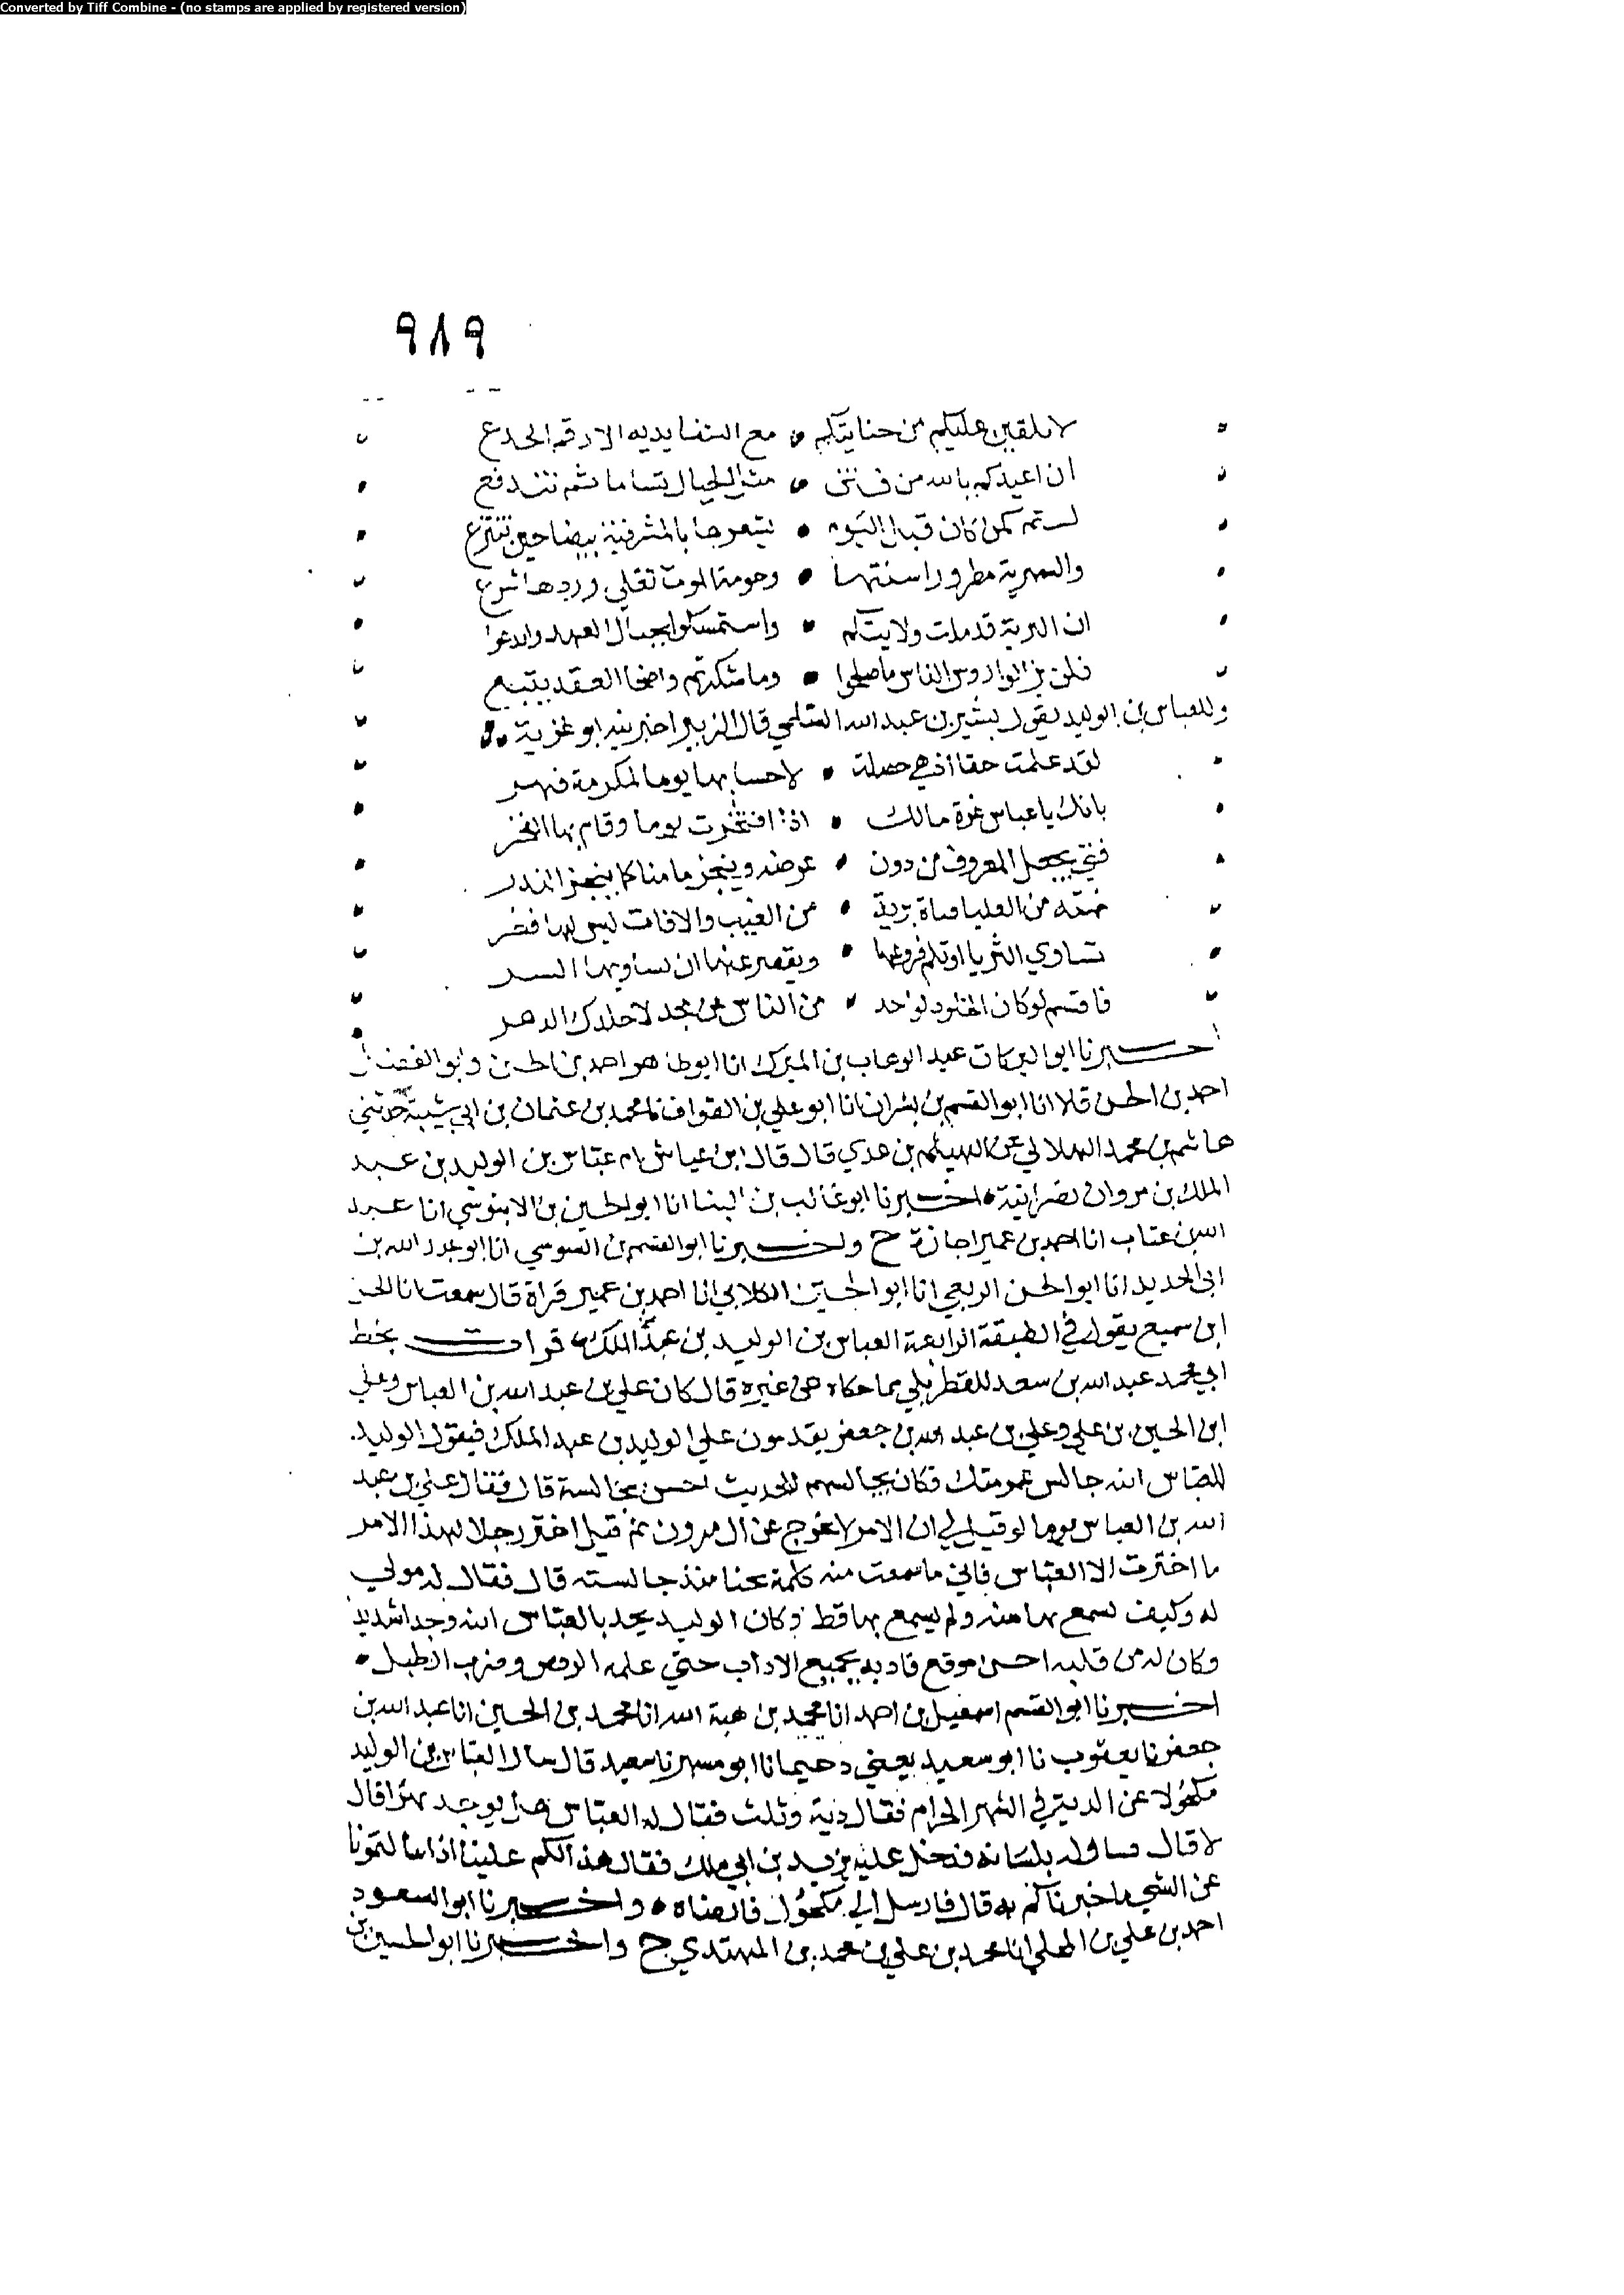 Converted by Tiff Combine - (no stamps are applied by registered version)
٩٨٩
لا تلقين عليكم من جنايتكم مع السفا يديه الارقم الجدع
ان اعيذكم بالله من فتن مثل الجبال تساما ثم تندفع
لستم كمن كان قبل اليوم يسعرها بالمشرفية بيضا حين تنتزع
والسمهرية مطرور اسنتها وحومة الموت تغلي وردها شرع
ان البرية قد ملت ولايتكم واستمسكوا بحبال العهد وارتدعوا
فلن يزالوا روس الناس ما صلحوا وما شكرتم واضحا العقد يتبع
وللعباس بن الوليد يقول بشير بن عبد الله السلمي قال الزبير اخبرنيه ابو غزية
لقد علمت حقا اذ هي حصلت لاحسابها يوما لمكرمة فهر
بانك يا عباس غرة مالك اذا افتخرت يوما وقام بها الفخر
فتى يجعل المعروف من دون عرضه وينجز ما منا كما ينجز النذر
من العليا قناة برية من العيب والافات ليس لها فطر
تساوي الثريا او تلم فروعها ويقصر عنها ان يساويها النسر
فاقسم لو كان الخلود لواحد من الناس عن مجد لاخلدك الدهر
اخبرنا ابو البركات عبد الوهاب بن المبرك انا ابو طاهر احمد بن الحسن وابو الفضل
احمد بن الحسن قالا انا ابو القسم بن بشران انا ابو علي بن الصواف نا محمد بن عثمان بن ابي شيبة حدثني
هاشم بن محمد الهلالي عن الهيثم بن عدي قال قال ابن عياش ام عباس بن الوليد بن عبد
الملك بن مروان نصرانية اخبرنا ابو غالب بن البنا انا ابو الحسين بن الابنوسي انا عبد
الله بن عتاب انا احمد بن عمير اجازة ح واخبرنا ابو القسم بن السوسي انا ابو عبد الله بن
ابي الحديد انا ابو الحسن الربعي انا ابو الحسين الكلابي انا احمد بن عمير قراة قال سمعت ابا الحسن
ابن سميع يقول في الطبقة الرابعة العباس بن الوليد بن عبد الملك قرات بخط
ابي محمد عبد الله بن سعد القطربلي مما حكاه عن غيره قال كان علي بن عبد الله بن العباس وعلي
ابن الحسين بن علي وعلي بن عبد الله بن جعفر يقدمون على الوليد بن عبد الملك فيقول الوليد
للعباس ابنه جالس عمومتك فكان يجالسهم للحديث احسن مجالسة قال فقال علي بن عبد
الله بن العباس يوما لو قيل لي ان الامر لا يخرج عن ال مروان ثم قيل اختر رجلا لهذا الامر
ما اخترت الا العباس فاني ما سمعت منه كلمة خنا منذ جالسته قال فقال له مولى
له وكيف تسمع بها منه ولم يسمع بها قط وكان الوليد يجد بالعباس ابنه وجدا شديدا
وكان له من قلبه احسن موقع فادبه بجميع الاداب حتى علمه الرقص وضرب الطبل
اخبرنا ابو القسم اسمعيل بن احمد انا محمد بن هبة الله انا محمد بن الحسين انا عبد الله بن
جعفر نا يعقوب نا ابو سعيد يعني دحيما نا ابو مسهر نا سعيد قال سال العباس بن الوليد
مكحولا عن الدية في الشهر الحرام فقال دية وثلث فقال له العباس هل يوجد بهذا قال
لا قال بلسانه فدخل عليه يزيد بن ابي ملك فقال هذا لكم علينا اذا سالتمونا
عن الشي اخبرناكم به قال فارسل الى مكحول فارضاه واخبرنا ابو السعود
احمد بن علي بن المجلي انا محمد بن علي بن محمد بن المهتدي ح واخبرنا ابو الحسين بن